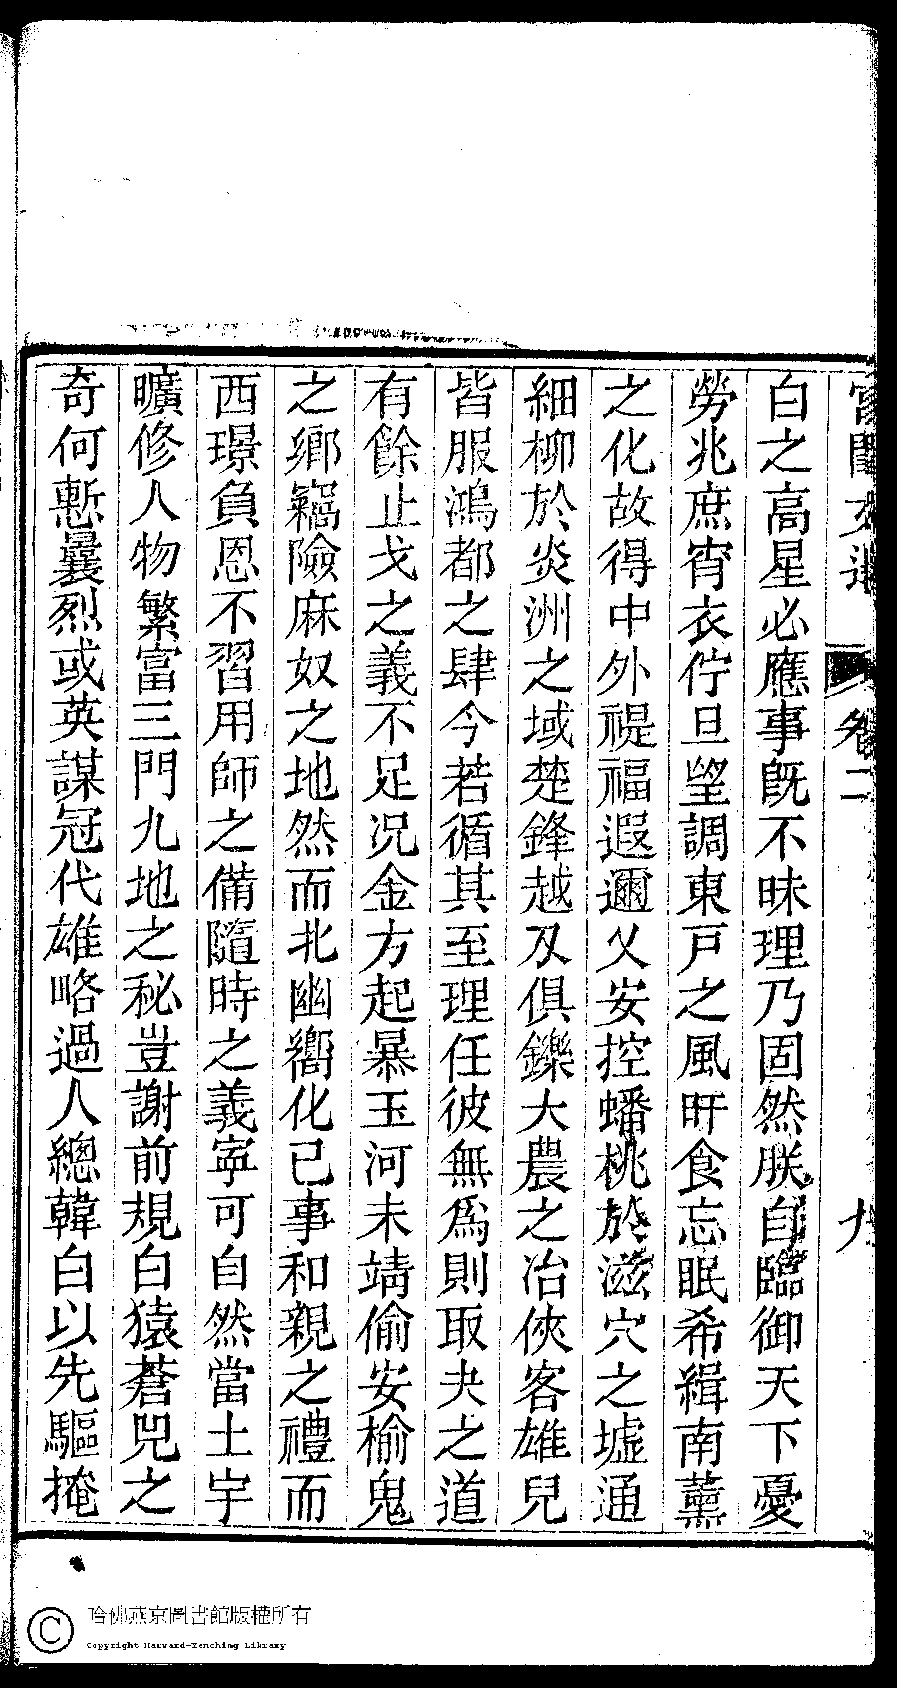 宮閨文選 卷二 九
白之高星必應事旣不昧理乃固然朕自臨御天下憂
勞兆庶宵衣佇旦望調東戸之風旰食忘眠希緝南薰
之化故得中外禔福遐邇乂安控蟠桃於滋穴之墟通
細柳於炎洲之域楚鋒越及俱鑠大農之冶俠客雄兒
皆服鴻都之肆今若循其至理任彼無爲則取夬之道
有餘止戈之義不足况金方起暴玉河未靖偷安榆鬼
之鄉竊險麻奴之地然而北幽嚮化已事和親之禮而
西璟負恩不習用師之備隨時之義寧可自然當土宇
曠修人物繁富三門九地之秘豈謝前規白猿蒼兕之
奇何慙曩烈或英謀冠代雄略過人總韓白以先驅掩
哈佛燕京圖書館版權所有
Copyright Harvard-Yenching Library